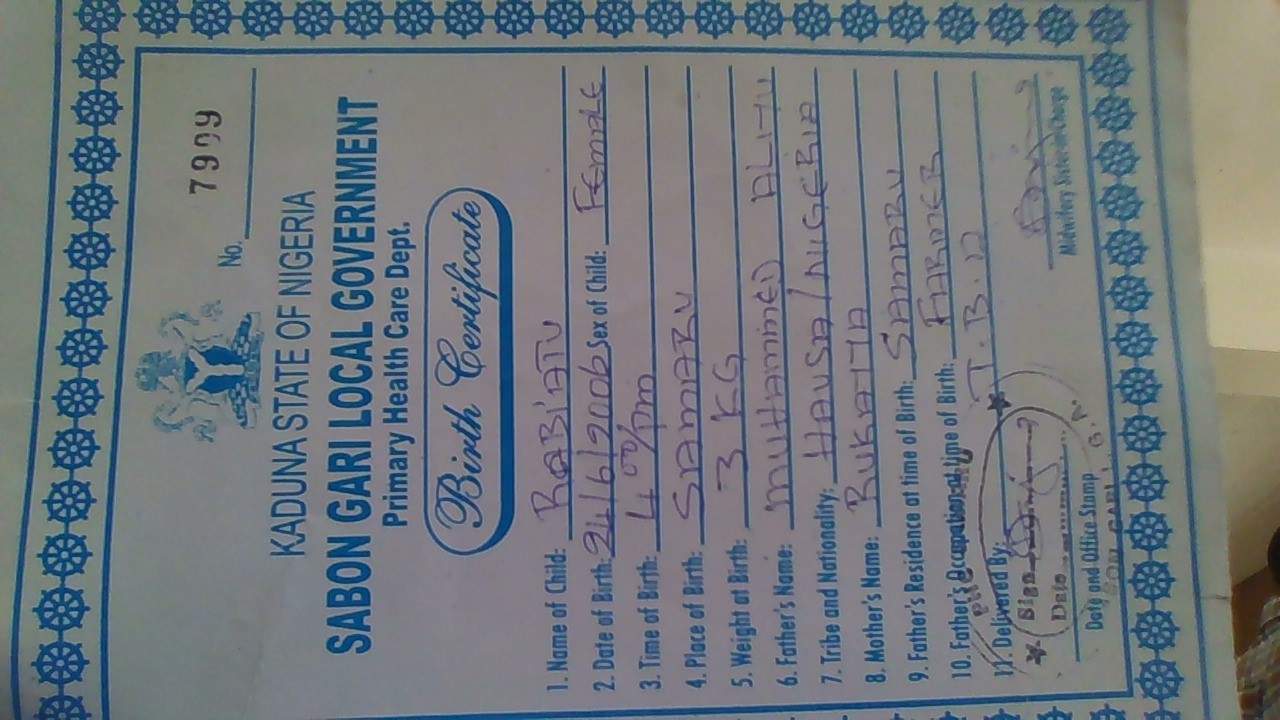 7909
No.
KADUNA STATE OF NIGERIA
SABON GARI LOCAL GOVERNMENT
Primary Health Care Dept.
Birth Certificate
1. Name of Child: RABI'ATU
2. Date of Birth: 24/6/2006 Sex of Child: FEMALE
3. Time of Birth: 4:00/pm
4. Place of Birth: SAMARU
5. Weight at Birth: 3 KG
6. Father's Name: MUHAMMED ALIHU
7. Tribe and Nationality: HAUSA/NIGERIA
8. Mother's Name: RUKAIYA
9. Father's Residence at time of Birth: SAMARU
10. Father's Occupation at time of Birth: FARMER
11. Delivered By: T.B.A
Sign
Date
Date and Office Stamp
Midwifery Sister-in-Charge